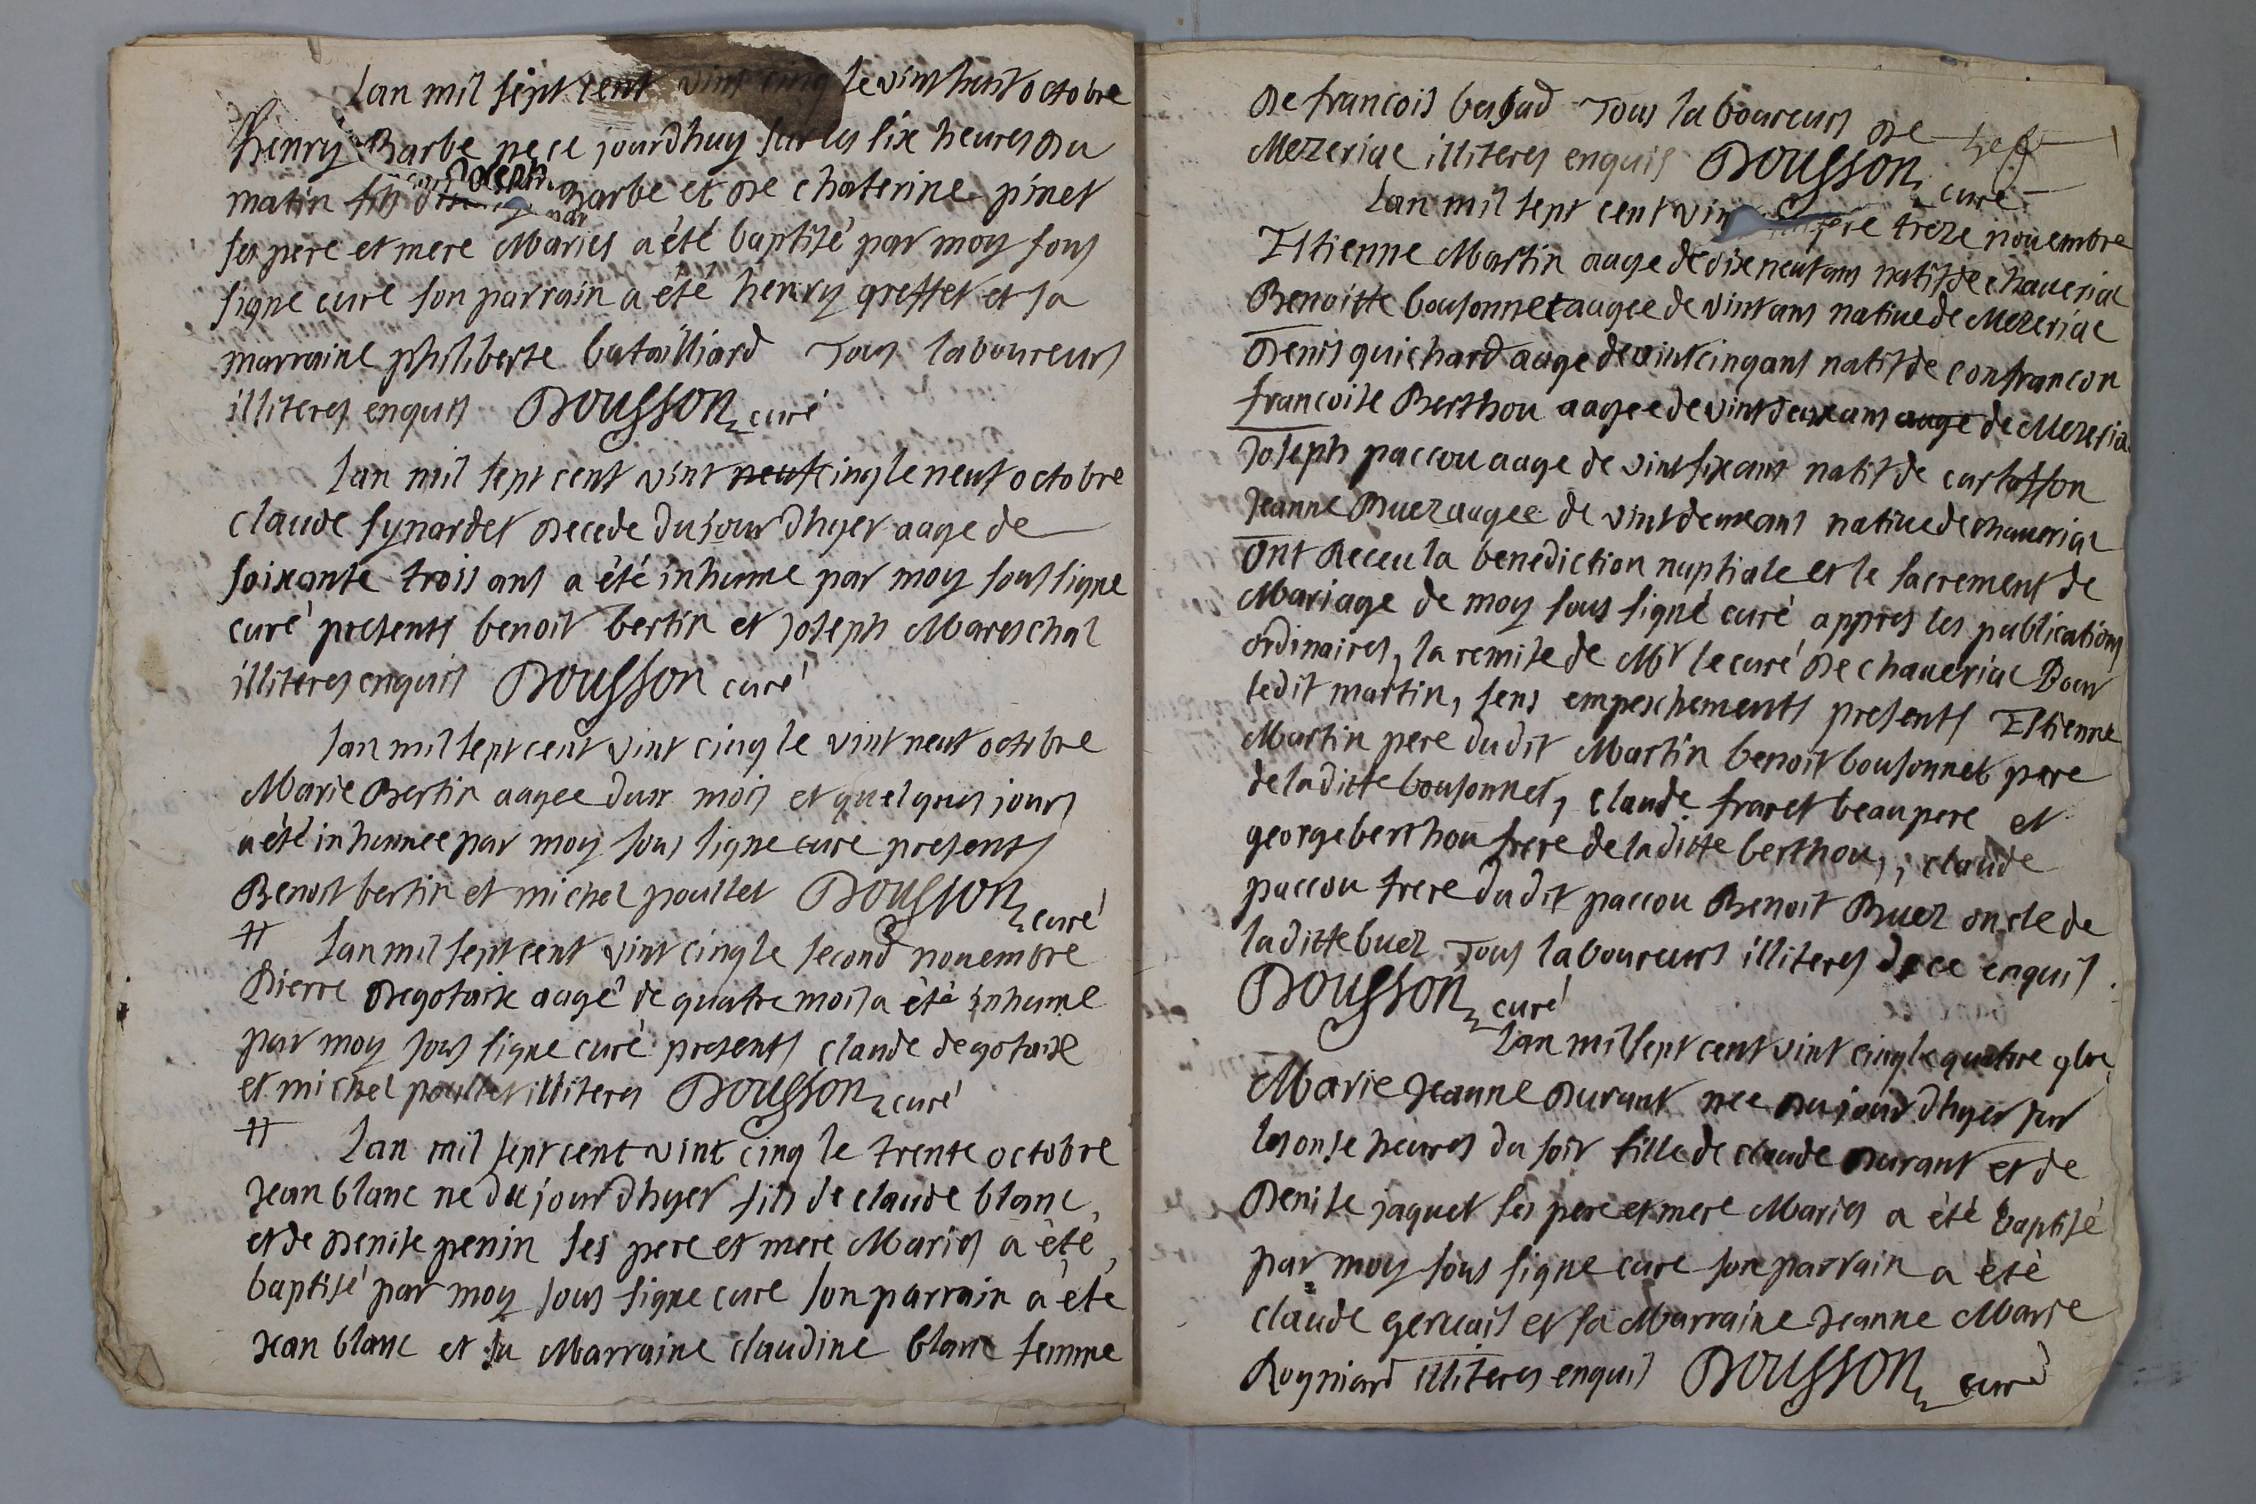 Lan mil sept cent vint cinq le vint huit octobre
henry Barbe ne ce jourdhuy sur les six heures du
matin fils de Joseph Barbe et de chaterine pinet
ses pere et mere Maries a été baptisé par moy sous
signe curé son parrain a été henry greffet et sa
marraine philiberte batailliard Tous laboureurs
illiteres enquis DOUSSON curé
Lan mil sept cent vint neuf cinq le neuf octobre
claude synardet decede du jour dhyer aage de
soixante trois ans a été inhume par moy sous signe
curé presents benoit bertin et joseph Mareschal
illiteres enquis DOUSSON curé
Lan mil sept cent vint cinq le vint neuf octobre
Marie Bertin aagee dun mois et quelques jours
a été inhumee par moy sous signe curé presents
Benoit bertin et michel poullet DOUSSON curé
Lan mil sept cent vint cinq le second nouembre
Pierre Degotaix aagé de quatre mois a été inhume
par moy sous signe curé presents claude degotaix
et michel poullet illiteres DOUSSON curé
Lan mil sept cent vint cinq le trente octobre
Jean blanc ne du jour dhyer fils de claude blanc
et de Denise penin ses pere et mere Maries a été
baptisé par moy sous signe curé son parrain a été
Jean blanc et sa Marraine claudine blanc femme
De francois Tous laboureurs de
Mezeriac illiteres enquis DOUSSON curé
Lan mil sept cent vin treze nouembre
Estienne Martin aage de dix neuf ans natif de chaueriac
Benoitte bousonnet aagee de vint ans natiue de Mezeriac
Denis guichard aage de vint cinq ans natif de confrancon
francoise Berthou aagee de vint deux ans aage de Mezeria
Joseph paccou aage de vint six ans natif de
Jeanne Buez aagee de vint deux ans natiue de chaueriac
Ont Receu la benediction nuptiale et le sacrement de
Mariage de moy sous signé curé appres les publications
ordinaires, la remise de Mr le curé de chaueriac Pour
ledit martin, sens empeschements presents Estienne
Martin pere dudit Martin benoit bousonnet pere
de laditte bousonnet, claude fraret beaupere et
george berthou frere de laditte berthou,, claude
paccou frere dudit paccou Benoit Buez oncle de
laditte buez Tous laboureurs illiteres de ce enquis
DOUSSON curé
Lan mil sept cent vint cinq le quatre 9bre
Marie Jeanne Durant nee du jour dhyer sur
les onse heures du soir fille de claude Durant et de
Denise jaquet ses pere et mere Maries a été baptisé
par moy sous signe curé son parrain a été
claude geruais et sa Marraine Jeanne Marie
Roymard illiteres enquis DOUSSON curé